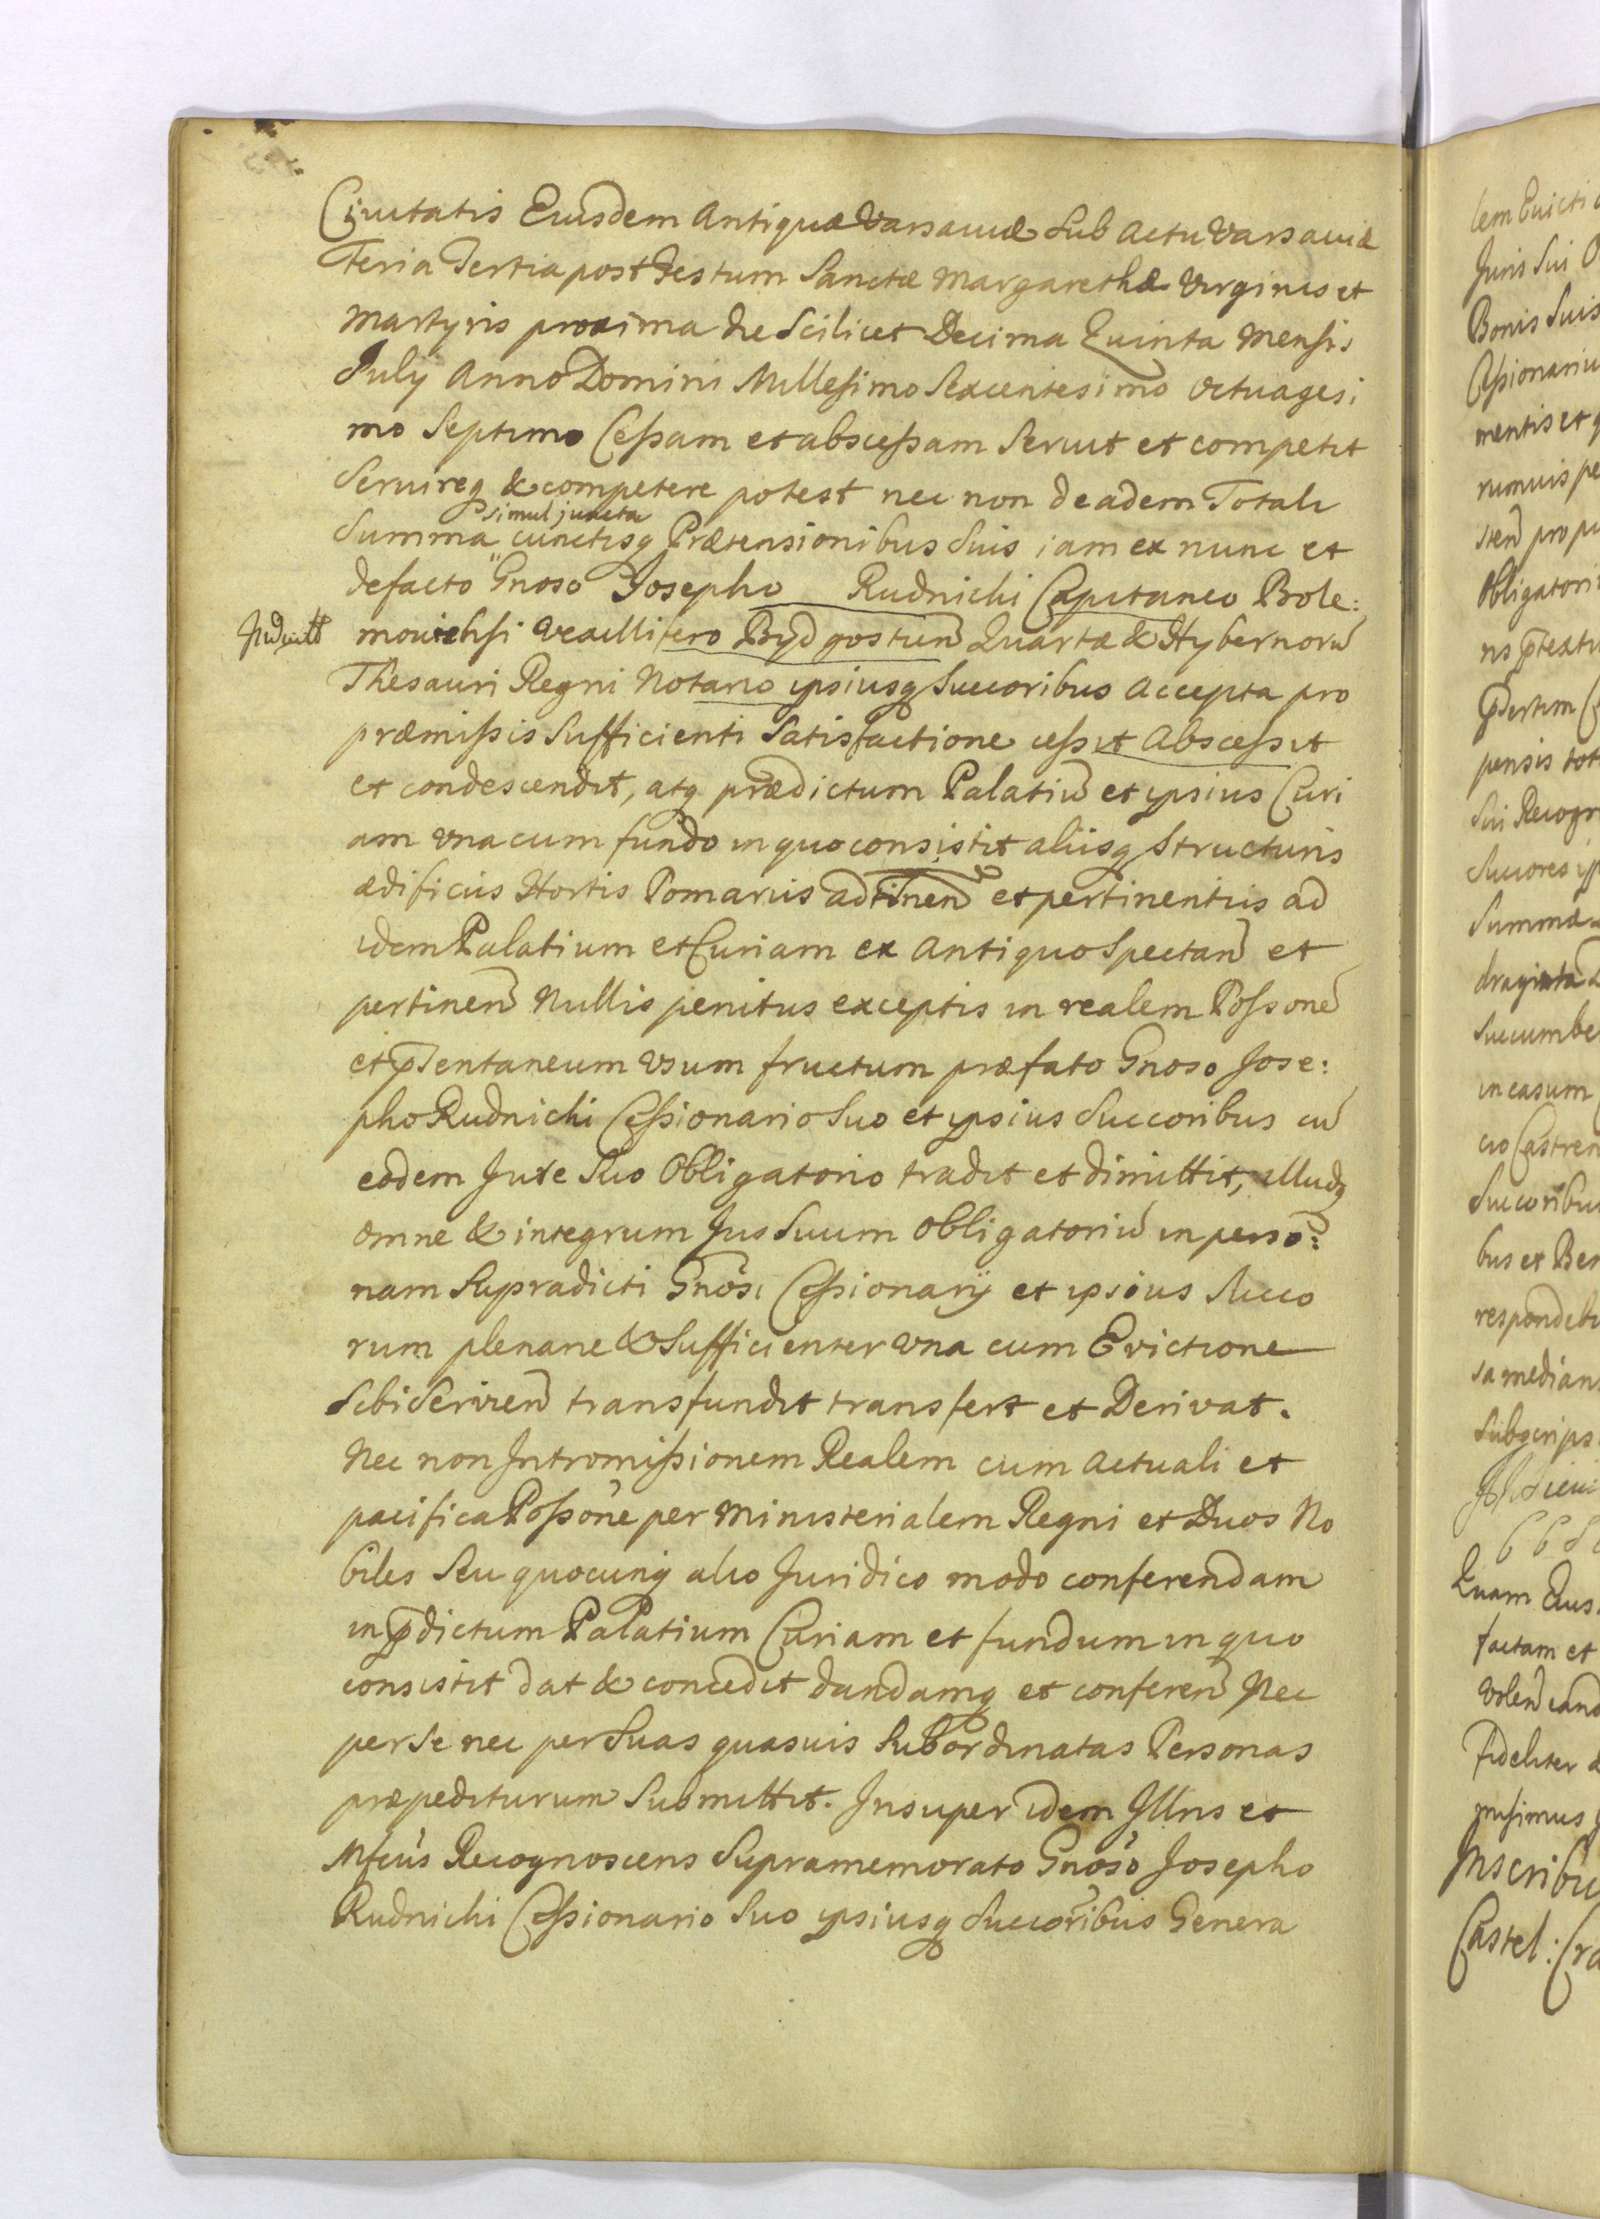 Civitatis Eiusdem Antiquæ Varsaviæ Sub Actu Varsaviæ
Feria Tertia post Festum Sanctæ Margarethæ Virginis et
Martyris proxima die Scilicet Decima Quinta Mensis
July Anno Domini Millesimo Sexcentesimo Octuagesi
mo Septimo Cessam et abscessam Servit et competit
Servireq & competere potest nec non de eadem Totali
simul juncta
Summa cunctisq Prætensionibus Suis iam ex nunc et
defacto Gnoso Josepho Rudnichi Capitaneo Bole:
moviensi Vexillifero Bydgostien Quartæ & Hybernorū
Thesauri Regni Notario ipsiusq Succoribus Accepta pro
præmissis Sufficienti Satisfactione cessit Abscessit
et condescendit, atq prædictum Palatiū et ipsius Curi
am Vna cum fundo in quo consistit aliisq Structuris
ædificiis Hortis Pomariis adtinen et pertinentiis ad
idem Palatium et Curiam ex Antiquo Spectan et
pertinen Nullis penitus exceptis in realem Possone
et pntentaneum Vsum fructum præfato Gnoso Jose:
pho Rudnichi Cessionario Suo et ipsius Succoribus cū
eodem Jure Suo Obligatorio tradit et dimittit, illudq
Omne & integrum Jus Suum Obligatoriū in perso:
nam Supradicti Gnosi Cessionarij et ipsius Succo
rum plenarie & Sufficienter Vna cum Evictione
Sibi Servien transfundit transfert et Derivat.
Nec non Intromissionem Realem cum Actuali et
pacifica Possone per Ministerialem Regni et Duos No
biles Seu quocunq alio Juridico modo conferendam
in pdictum Palatium Curiam et fundum in quo
consistit dat & concedit dandamq et conferen Nec
per Se nec per Suas quasvis Subordinatas Personas
præpediturum Submittit. Insuper idem Jllris et
Mfcus Recognoscens Supramemorato Gnoso Josepho
Rudnichi Cessionario Suo ipsiusq Succoribus Genera
lem Evicti
Juris Sui O
Bonis Suis
Cessionariu
mentis et q
rumvis pe
pro pr
Obligatori
pensis tot
Sui Recogn
Succores ip
Summæ
draginta
Succumbe
in casum
cio Castren
Succoribus
bus et Ber
respondebi
sa median
Subscrips
Quam Eius
factam et
Volen eand
Fideliter
Inscribu
Castel: Cra